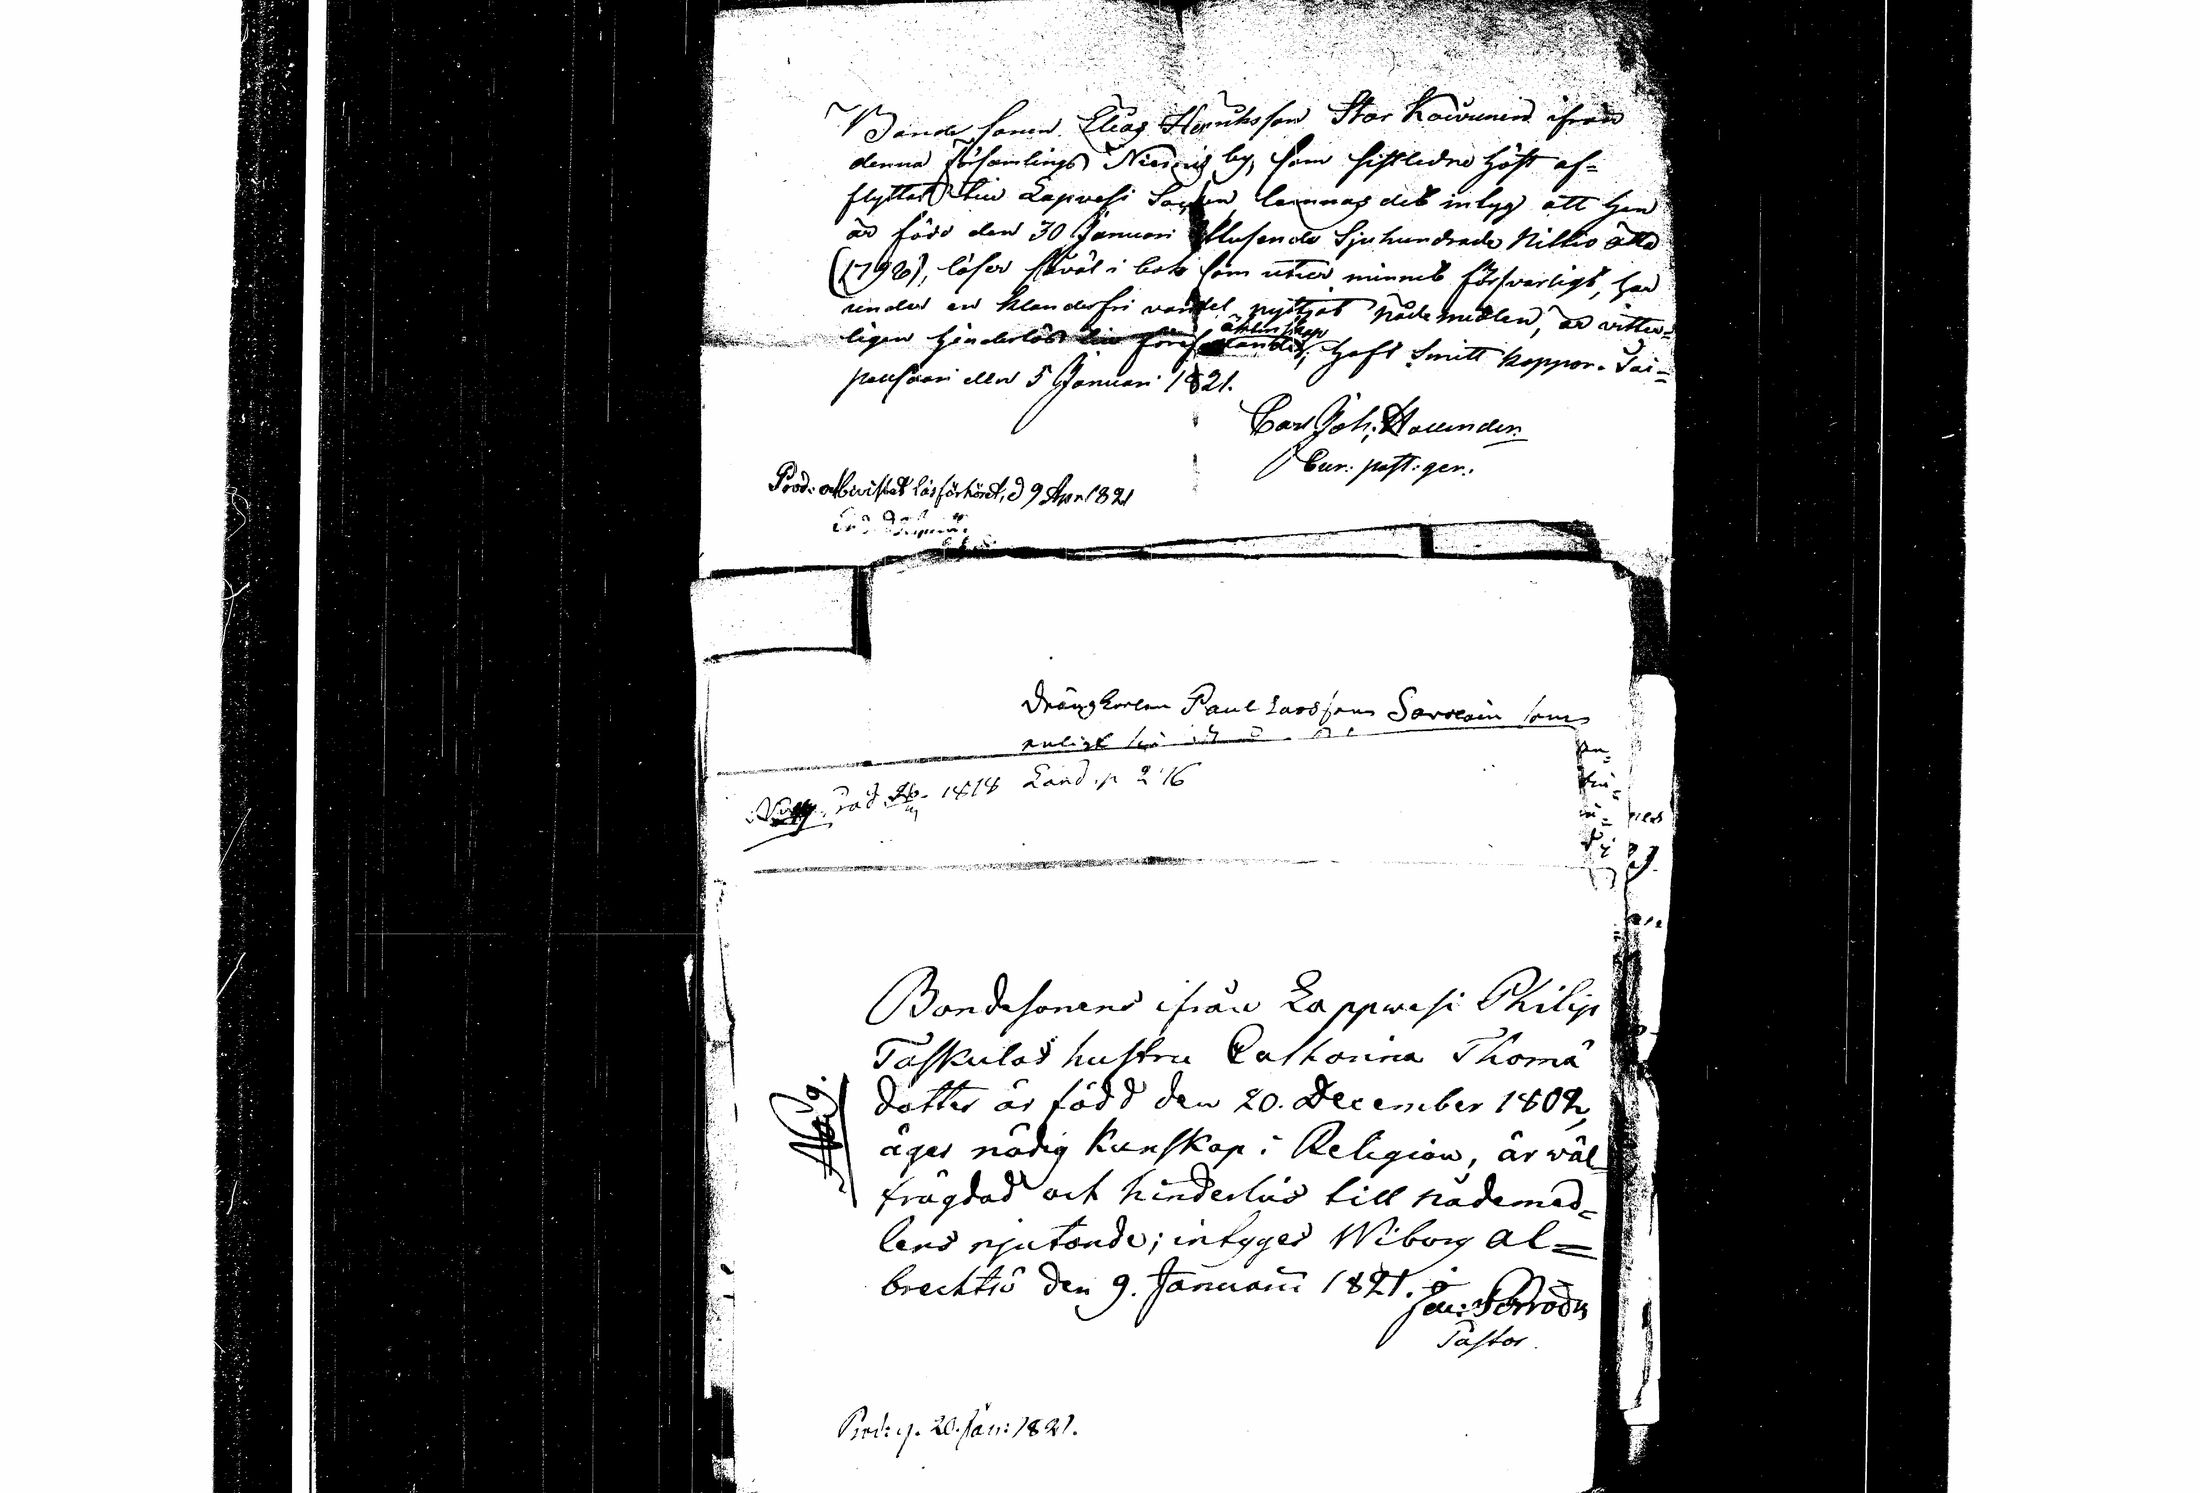 Bonde sonen Elias Henriksson Stor Koivunen ifrån
denna Församlings Niemis by, som sistledne höst af=
flyttat till Lapvesi Socken lemnas det intyg att han
är född den 30 Januari Ettusende Sjuhundrade Nittio åtta
(1798), läser såväl i bok som utur minnet försvarligt, har
under en klanderfri vandel nyttjat Nådemedlen, är vitter=
ligen hinderlös till äktenskap, haft Smitt koppor. Tai=
palsaari den 5 Januari 1821.
Carl Joh:
Cur: past: ger:
Prod: o bevistat läsförhöret, d 9 Apr 1821
Drängkarlen Paul Larsson som
enligt
1818 Land. p 216
Bondesonens ifrån Lappwesi Philip
Taskulas hustru Catharina Thomä
dotter är född den 20. December 1802,
äger nödig kunskap i Religion, är wäl
frägdad och hinderlös till nådemed=
lens njutande; intyges Wiborg al=
brechtsö den 9. Januarii 1821.
Pastor.
Prod: d. 20. Jan: 1821.